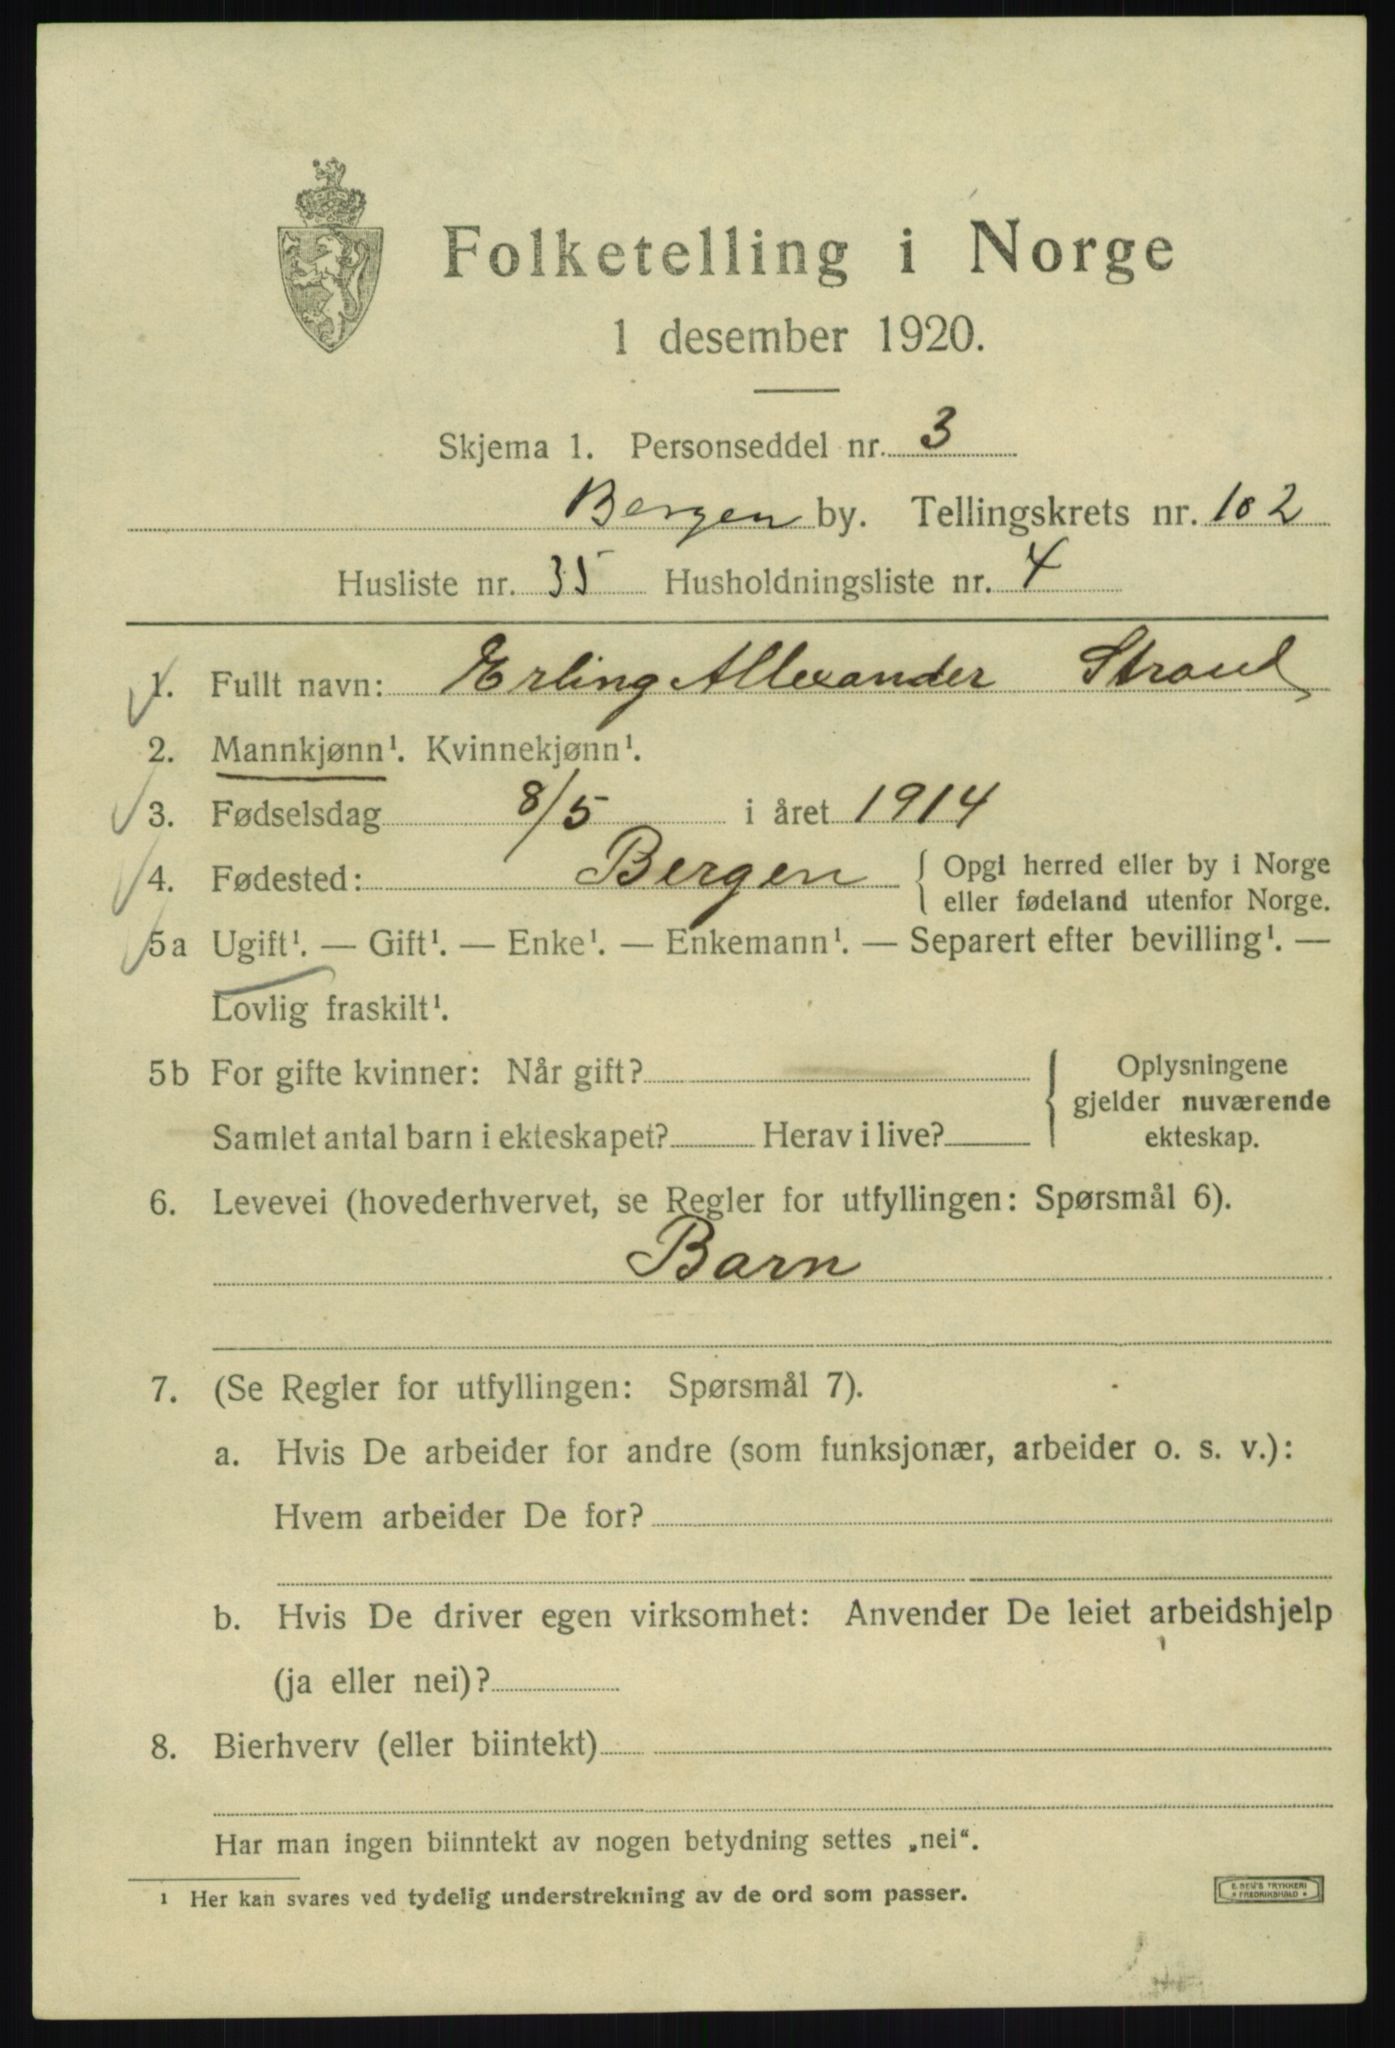 Folketelling i Norge
1 desember 1920.
Skjema 1. Personseddel nr. 3
Bergen by. Tellingskrets nr. 102
Husliste nr. 35 Husholdningsliste nr. 4
1. Fullt navn: Erling Allexander Strand
2. Mannkjønn¹. Kvinnekjønn¹.
3. Fødselsdag 8/5 i året 1914
4. Fødested: Bergen { Opgi herred eller by i Norge
eller fødeland utenfor Norge.
5a Ugift¹. — Gift¹. — Enke¹. — Enkemann¹. — Separert efter bevilling¹. —
Lovlig fraskilt¹.
5b For gifte kvinner: Når gift? { Oplysningene
gjelder nuværende
Samlet antal barn i ekteskapet? Herav i live? ekteskap.
6. Levevei (hovederhvervet, se Regler for utfyllingen: Spørsmål 6).
Barn
7. (Se Regler for utfyllingen: Spørsmål 7).
a. Hvis De arbeider for andre (som funksjonær, arbeider o. s. v.):
Hvem arbeider De for?
b. Hvis De driver egen virksomhet: Anvender De leiet arbeidshjelp
(ja eller nei)?
8. Bierhverv (eller biintekt)
Har man ingen biinntekt av nogen betydning settes „nei“.
¹ Her kan svares ved tydelig understrekning av de ord som passer.
E. SEM'S TRYKKERI
• FREDRIKSHALD •